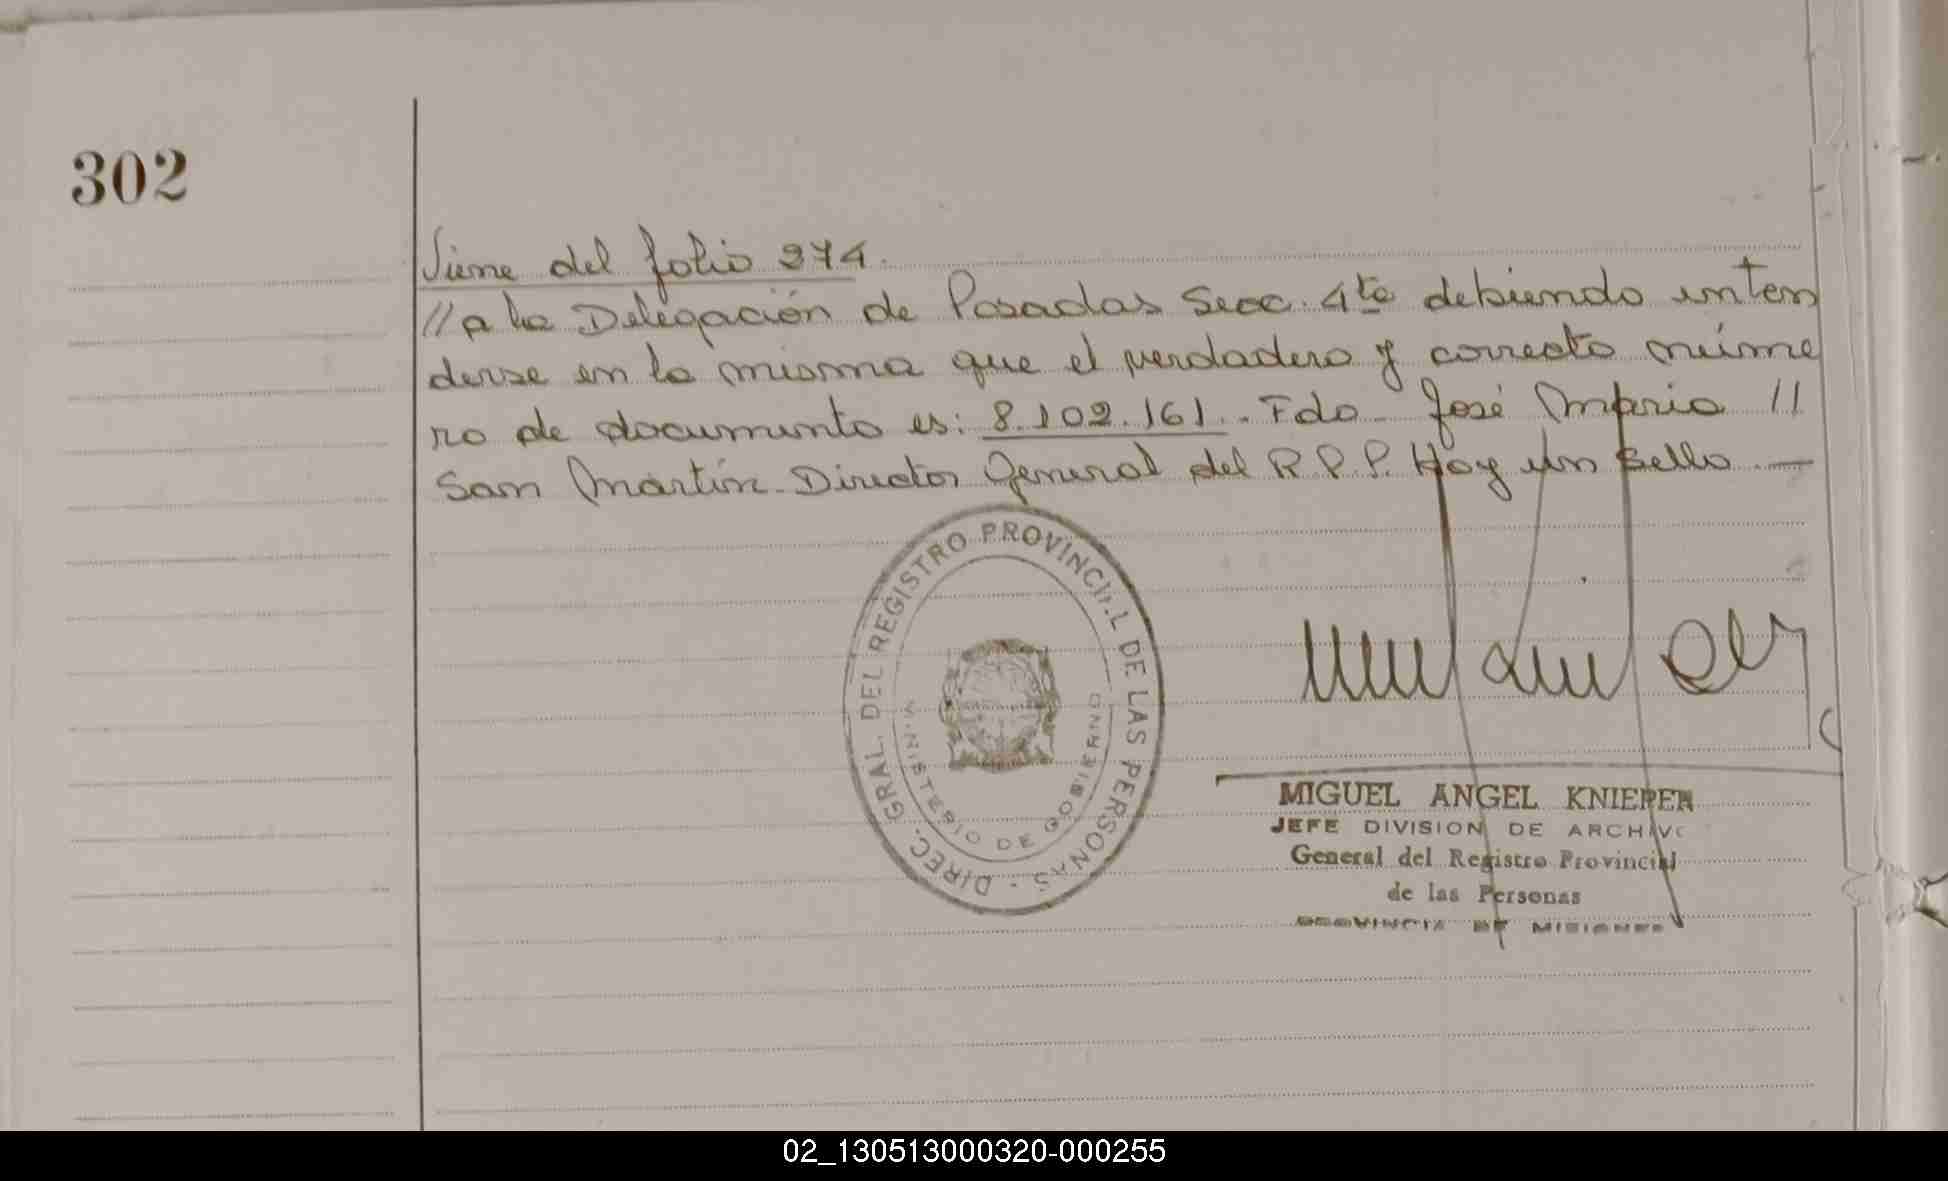 302
Viene del folio 274.
// a la Delegación de Posadas Secc. 4ta debiendo enten
derse en la misma que el verdadero y correcto núme
ro de documento es: 8.102.161.. Fdo. José Maria //
San Martín. Director General del R.P.P. Hay un sello. —
DIREC. GRAL. DEL REGISTRO PROVINCIAL DE LAS PERSONAS -
MINISTERIO DE GOBIERNO
MIGUEL ANGEL KNIEPER
JEFE DIVISION DE ARCHIVO
General del Registro Provincial
de las Personas
PROVINCIA DE MISIONES
02_130513000320-000255